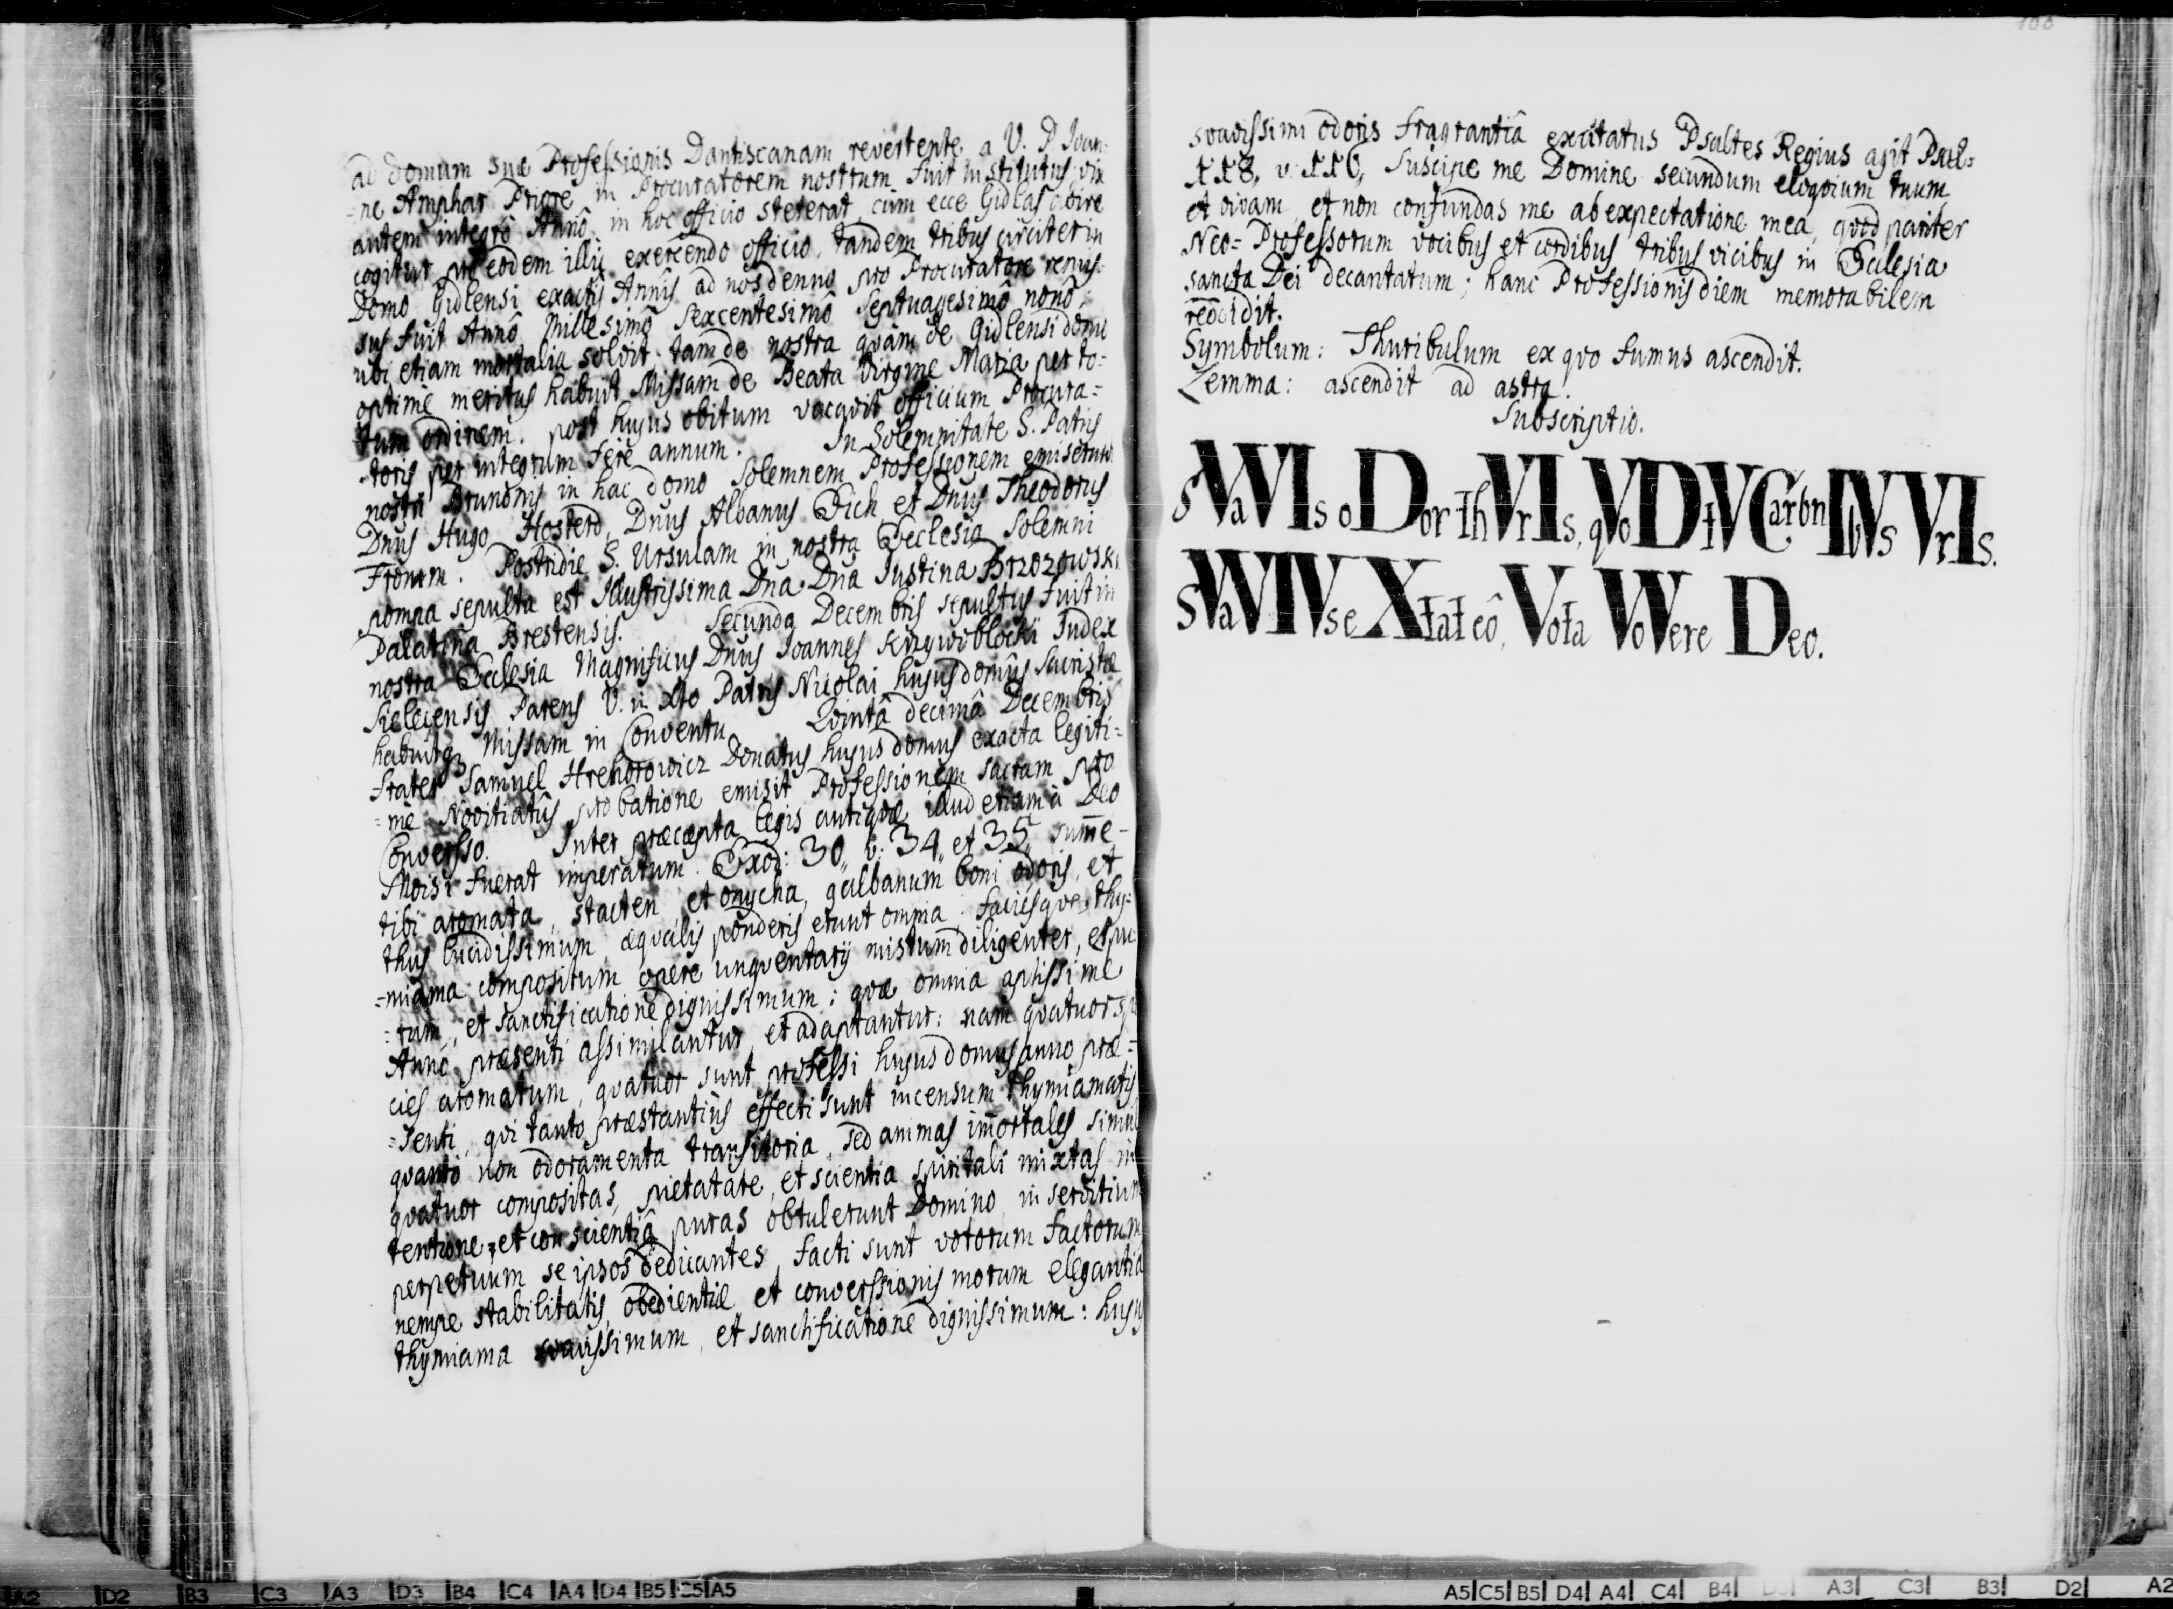 100
ad domum suæ Professionis Dantiscanam revertente, a V. P. Ioan-
-ne Amphar Priore in Procuratorem nostrum fuit institutus, vix
autem integrô Annô in hoc officio steterat, cum ecce Gidlas abire
cogitur, pro eodem illic exercendo officio, tandem tribus circiter in
Domo Gidlensi exactis Annis ad nos denuo pro Procuratore remis-
sus fuit Annô Millesimô Sexcentesimô Septuagesimô nonô,
ubi etiam mortalia solvit tam de nostra quàm de Gidlensi domu
optimè meritus habuit Missam de Beata Virgine Maria per to-
tum ordinem. post hujus obitum vacavit officium Procura-
-toris per integrum ferè annum. In Solemnitate S. Patris
nostri Brunonis in hac domo solemnem Professionem emiserunt
Dnus Hugo Hosterd, Dnus Albanus Eich et Dnus Theodorus
Fromm. Postridie S. Ursulam in nostra Ecclesia solemni
pompa sepulta est Illustrissima Dna Dna Iustina Brzozowska
Palatina Brestensis. Secunda Decembris sepultus fuit in
nostra Ecclesia Magnificus Dnus Ioannes Krzywobłocki Iudex
Sielecensis Parens V. in Xto Patris Nicolai hujus domûs Sacristæ
habuitq; Missam in Conventu. Quintâ decimâ Decembris
frater Samuel Hrehorowicz Donatus hujus domus exacta legiti-
=mè Novitiatûs probatione emisit Professionem sacram pro
Converso. Inter præcepta legis antiquæ illud etiam à Deo
Moisi fuerat imperatum. Exod: 30, v: 34, et 35, sume
tibi aromata, stacten et onycha, galbanum boni odoris, et
thus lucidissimum, æqualis ponderis erunt omnia. faciesque thy-
=miama compositum opere unguentarij mistum diligenter, et pu-
=rum, et sanctificatione dignissimum: quæ omnia aptissimè
Annô præsenti assimilantur, et adaptantur: nam quatuor spe
cies aromatum, quatuor sunt professi hujus domus anno præ=
=senti, qui tanto præstantiùs effecti sunt incensum thymiamatis
quantò non odoramenta transitoria, sed animas immortales simul
quatuor compositas, pietatate, et scientia spiritali mixtas in
tentione, et conscientiâ puras obtulerunt Domino, in servitium
perpetuum se ipsos dedicantes, facti sunt votorum factorum
nempe stabilitatis, obedientiæ et conversionis morum elegantia
thymiama suavissimum, et sanctificatione dignissimum: hujus
suavissimi odoris fragrantiâ excitatus Psaltes Regius ajit Psal=
118, v. 116, Suscipe me Domine secundum eloquium tuum,
et vivam, et non confundas me ab expectatione mea, quod pariter
Neo=Professorum vocibus et cordibus tribus vicibus in Ecclesia
sancta Dei decantatum; hanc Professionis diem memorabilem
reddidit.
Symbolum: Thuribulum ex quo fumus ascendit.
Lemma: ascendit ad astra.
Subscriptio.
SVaVIs oDor thVrIs, qVoD tV CarbnIbVs VrIs.
SVaVIVs eXtat eô, Vota VoVere Deo.
A2 D2 B3 C3 A3 D3 B4 C4 A4 D4 B5 C5 A5
A5 C5 B5 D4 A4 C4 B4 D3 A3 C3 B3 D2 A2